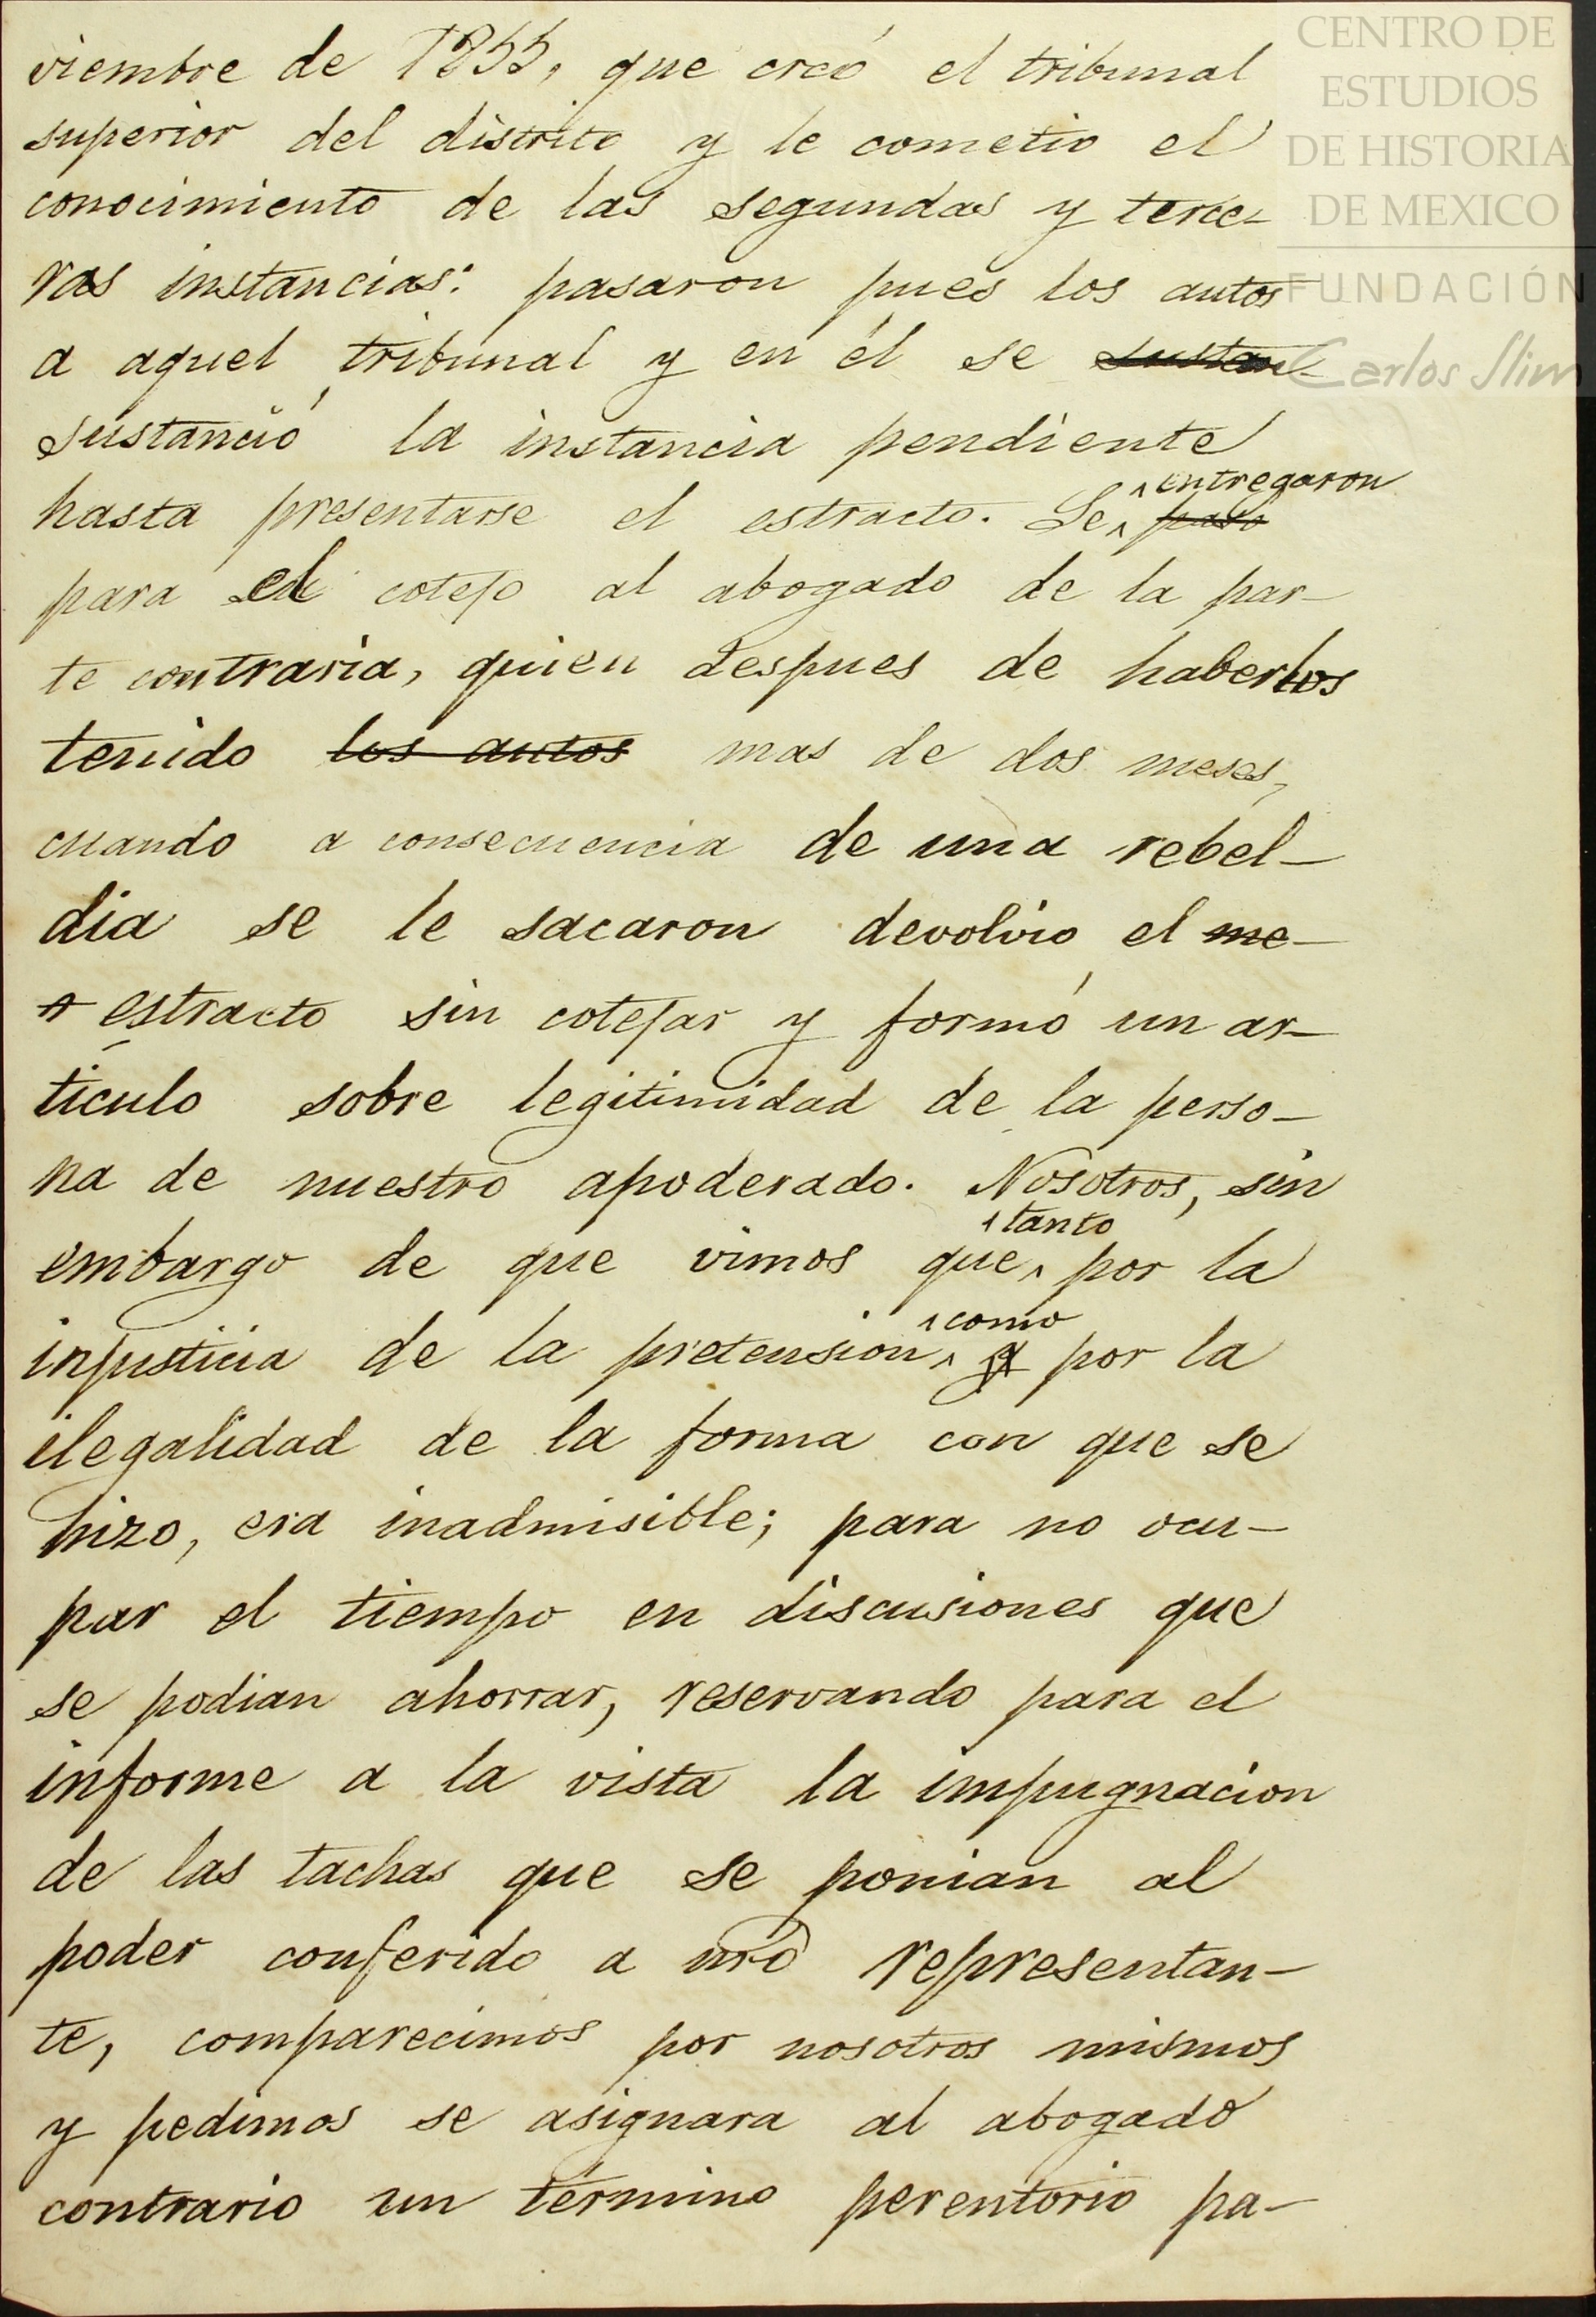 viembre de 1855, que creó el tribunal
superior del distrito y le cometio el
conocimiento de las segundas y terce-
ras instancias: pasaron pues los autos
a aquel tribunal y en él se sustan-
sustanció la instancia pendiente
entregaron
hasta presentarse el estracto. Se paso
para el cotejo al abogado de la par-
te contraria, quien despues de haberlos
tenido los autos mas de dos meses,
cuando a consecuencia de una rebel-
dia se le sacaron devolvio el me-
estracto sin cotejar y formó un ar-
ticulo sobre legitimidad de la perso-
na de nuestro apoderado. Nosotros, sin
tanto
embargo de que vimos que por la
como
injusticia de la pretension y por la
ilegalidad de la forma con que se
hizo, era inadmisible; para no ocu-
par el tiempo en discusiones que
se podian ahorrar, reservando para el
informe a la vista la impugnacion
de las tachas que se ponian al
poder conferido a nro representan-
te, comparecimos por nosotros mismos
y pedimos se asignara al abogado
contrario un término perentorio pa-
CENTRO DE
ESTUDIOS
DE HISTORIA
DE MEXICO
FUNDACIÓN
Carlos Slim